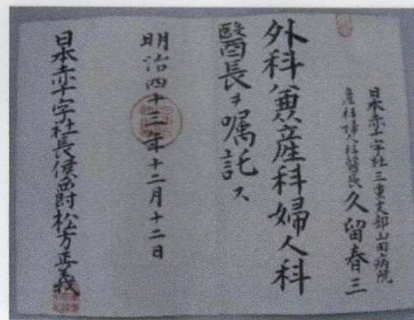 日本赤十字社三重支部山田病院
産科婦人科醫長 久留春三
外科兼産科婦人科
醫長ヲ嘱託ス
明治四十三年十二月十二日
日本赤十字社長侯爵松方正義